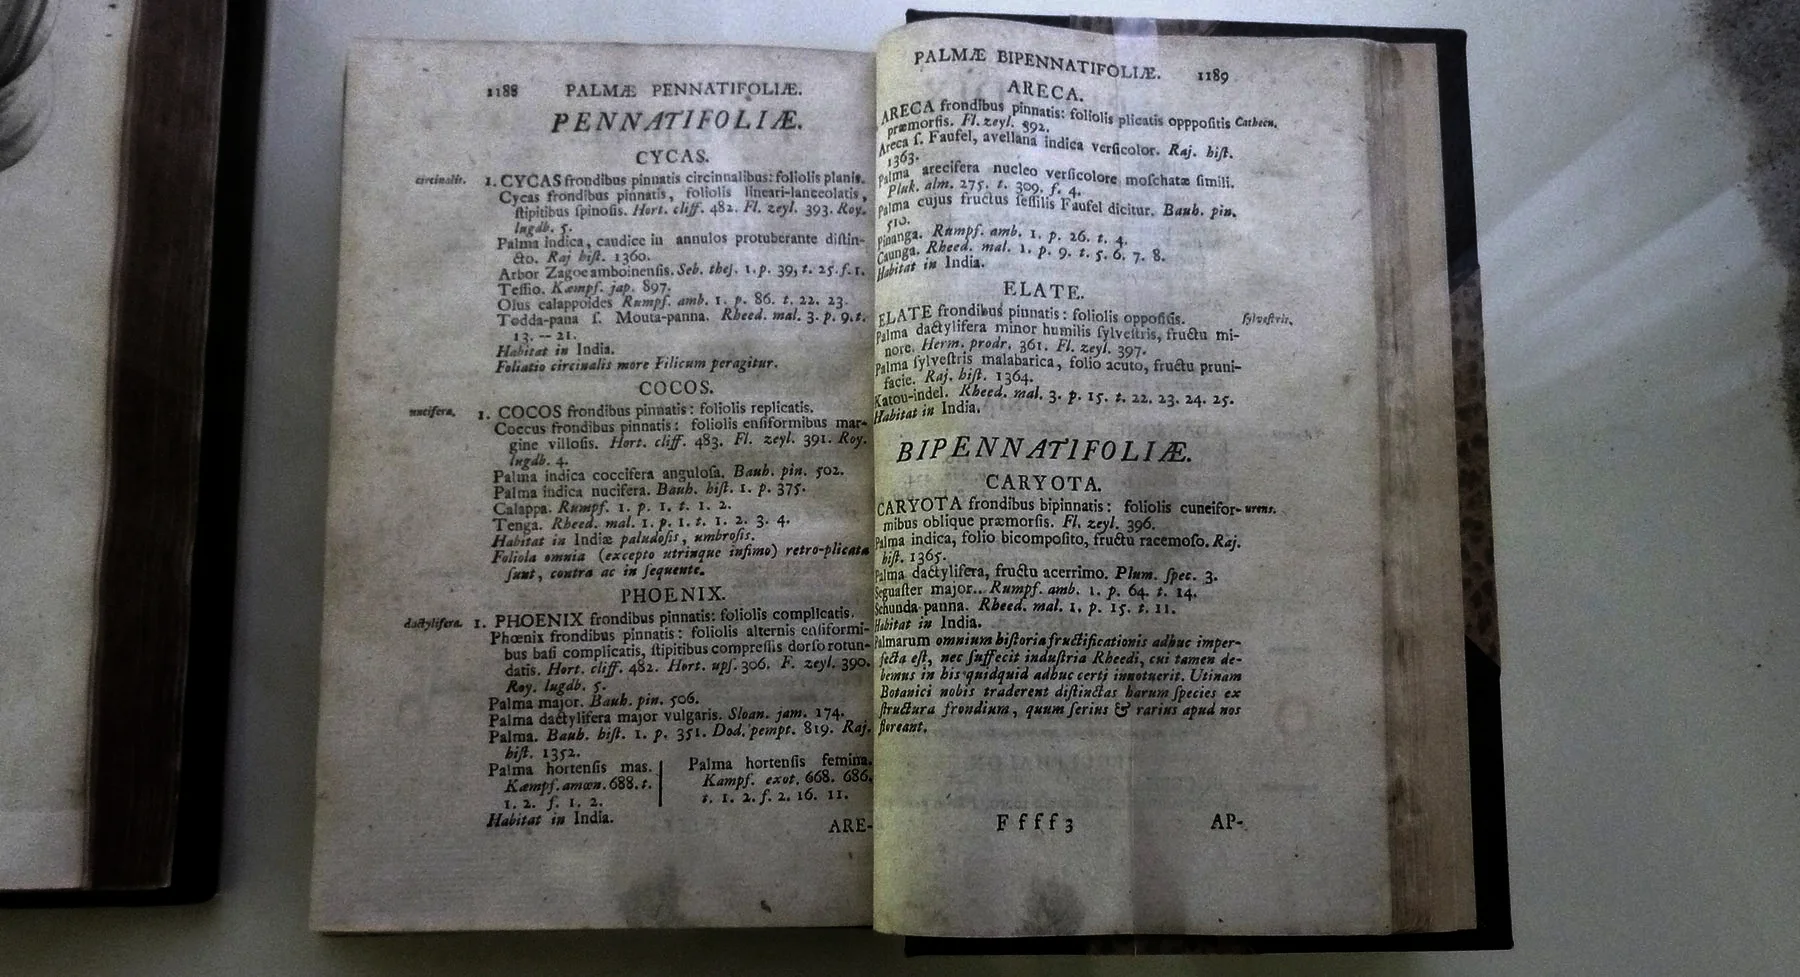 1188 PALMÆ PENNATIFOLIÆ.
PENNATIFOLIÆ.
CYCAS.
circinalis. 1. CYCAS frondibus pinnatis circinnalibus: foliolis planis.
Cycas frondibus pinnatis, foliolis lineari-lanceolatis,
ſtipitibus ſpinoſis. Hort. cliff. 482. Fl. zeyl. 393. Roy.
lugdb. 5.
Palma indica, caudice in annulos protuberante diſtin-
cto. Raj hiſt. 1360.
Arbor Zagoe amboinenſis. Seb. theſ. 1. p. 39, t. 25. f. 1.
Teſſio. Kæmpf. jap. 897.
Olus calappoides Rumpf. amb. 1. p. 86. t. 22. 23.
Todda-pana ſ. Mouta-panna. Rheed. mal. 3. p. 9. t.
13. -- 21.
Habitat in India.
Foliatio circinalis more Filicum peragitur.
COCOS.
nucifera. 1. COCOS frondibus pinnatis: foliolis replicatis.
Coccus frondibus pinnatis: foliolis enſiformibus mar-
gine villoſis. Hort. cliff. 483. Fl. zeyl. 391. Roy.
lugdb. 4.
Palma indica coccifera anguloſa. Bauh. pin. 502.
Palma indica nucifera. Bauh. hiſt. 1. p. 375.
Calappa. Rumpf. 1. p. 1. t. 1. 2.
Tenga. Rheed. mal. 1. p. 1. t. 1. 2. 3. 4.
Habitat in Indiæ paludoſis, umbroſis.
Foliola omnia (excepto utrinque infimo) retro-plicata
ſunt, contra ac in ſequente.
PHOENIX.
dactylifera. 1. PHOENIX frondibus pinnatis: foliolis complicatis.
Phœnix frondibus pinnatis: foliolis alternis enſiformi-
bus baſi complicatis, ſtipitibus compreſſis dorſo rotun-
datis. Hort. cliff. 482. Hort. upſ. 306. F. zeyl. 390.
Roy. lugdb. 5.
Palma major. Bauh. pin. 506.
Palma dactylifera major vulgaris. Sloan. jam. 174.
Palma. Bauh. hiſt. 1. p. 351. Dod. pempt. 819. Raj.
hiſt. 1352.
Palma hortenſis mas. | Palma hortenſis femina.
Kæmpf. amœn. 688. t. | Kæmpf. exot. 668. 686.
1. 2. f. 1. 2. | t. 1. 2. f. 2. 16. 11.
Habitat in India.
ARE-
PALMÆ BIPENNATIFOLIÆ. 1189
ARECA.
ARECA frondibus pinnatis: foliolis plicatis opppoſitis Cathecu.
præmorſis. Fl. zeyl. 392.
Areca ſ. Faufel, avellana indica verſicolor. Raj. hiſt.
1363.
Palma arecifera nucleo verſicolore moſchatæ ſimili.
Pluk. alm. 275. t. 309. f. 4.
Palma cujus fructus ſeſſilis Faufel dicitur. Bauh. pin.
510.
Pinanga. Rumpf. amb. 1. p. 26. t. 4.
Caunga. Rheed. mal. 1. p. 9. t. 5. 6. 7. 8.
Habitat in India.
ELATE.
ELATE frondibus pinnatis: foliolis oppoſitis. ſylveſtris.
Palma dactylifera minor humilis ſylveſtris, fructu mi-
nore. Herm. prodr. 361. Fl. zeyl. 397.
Palma ſylveſtris malabarica, folio acuto, fructu pruni-
facie. Raj. hiſt. 1364.
Katou-indel. Rheed. mal. 3. p. 15. t. 22. 23. 24. 25.
Habitat in India.
BIPENNATIFOLIÆ.
CARYOTA.
CARYOTA frondibus bipinnatis: foliolis cuneifor- urens.
mibus oblique præmorſis. Fl. zeyl. 396.
Palma indica, folio bicompoſito, fructu racemoſo. Raj.
hiſt. 1365.
Palma dactylifera, fructu acerrimo. Plum. ſpec. 3.
Seguaſter major.. Rumpf. amb. 1. p. 64. t. 14.
Schunda-panna. Rheed. mal. 1. p. 15. t. 11.
Habitat in India.
Palmarum omnium hiſtoria fructificationis adhuc imper-
fecta eſt, nec ſuffecit induſtria Rheedi, cui tamen de-
bemus in his quidquid adhuc certi innotuerit. Utinam
Botanici nobis traderent diſtinctas harum ſpecies ex
ſtructura frondium, quum ſerius & rarius apud nos
floreant.
Ffff 3 AP-